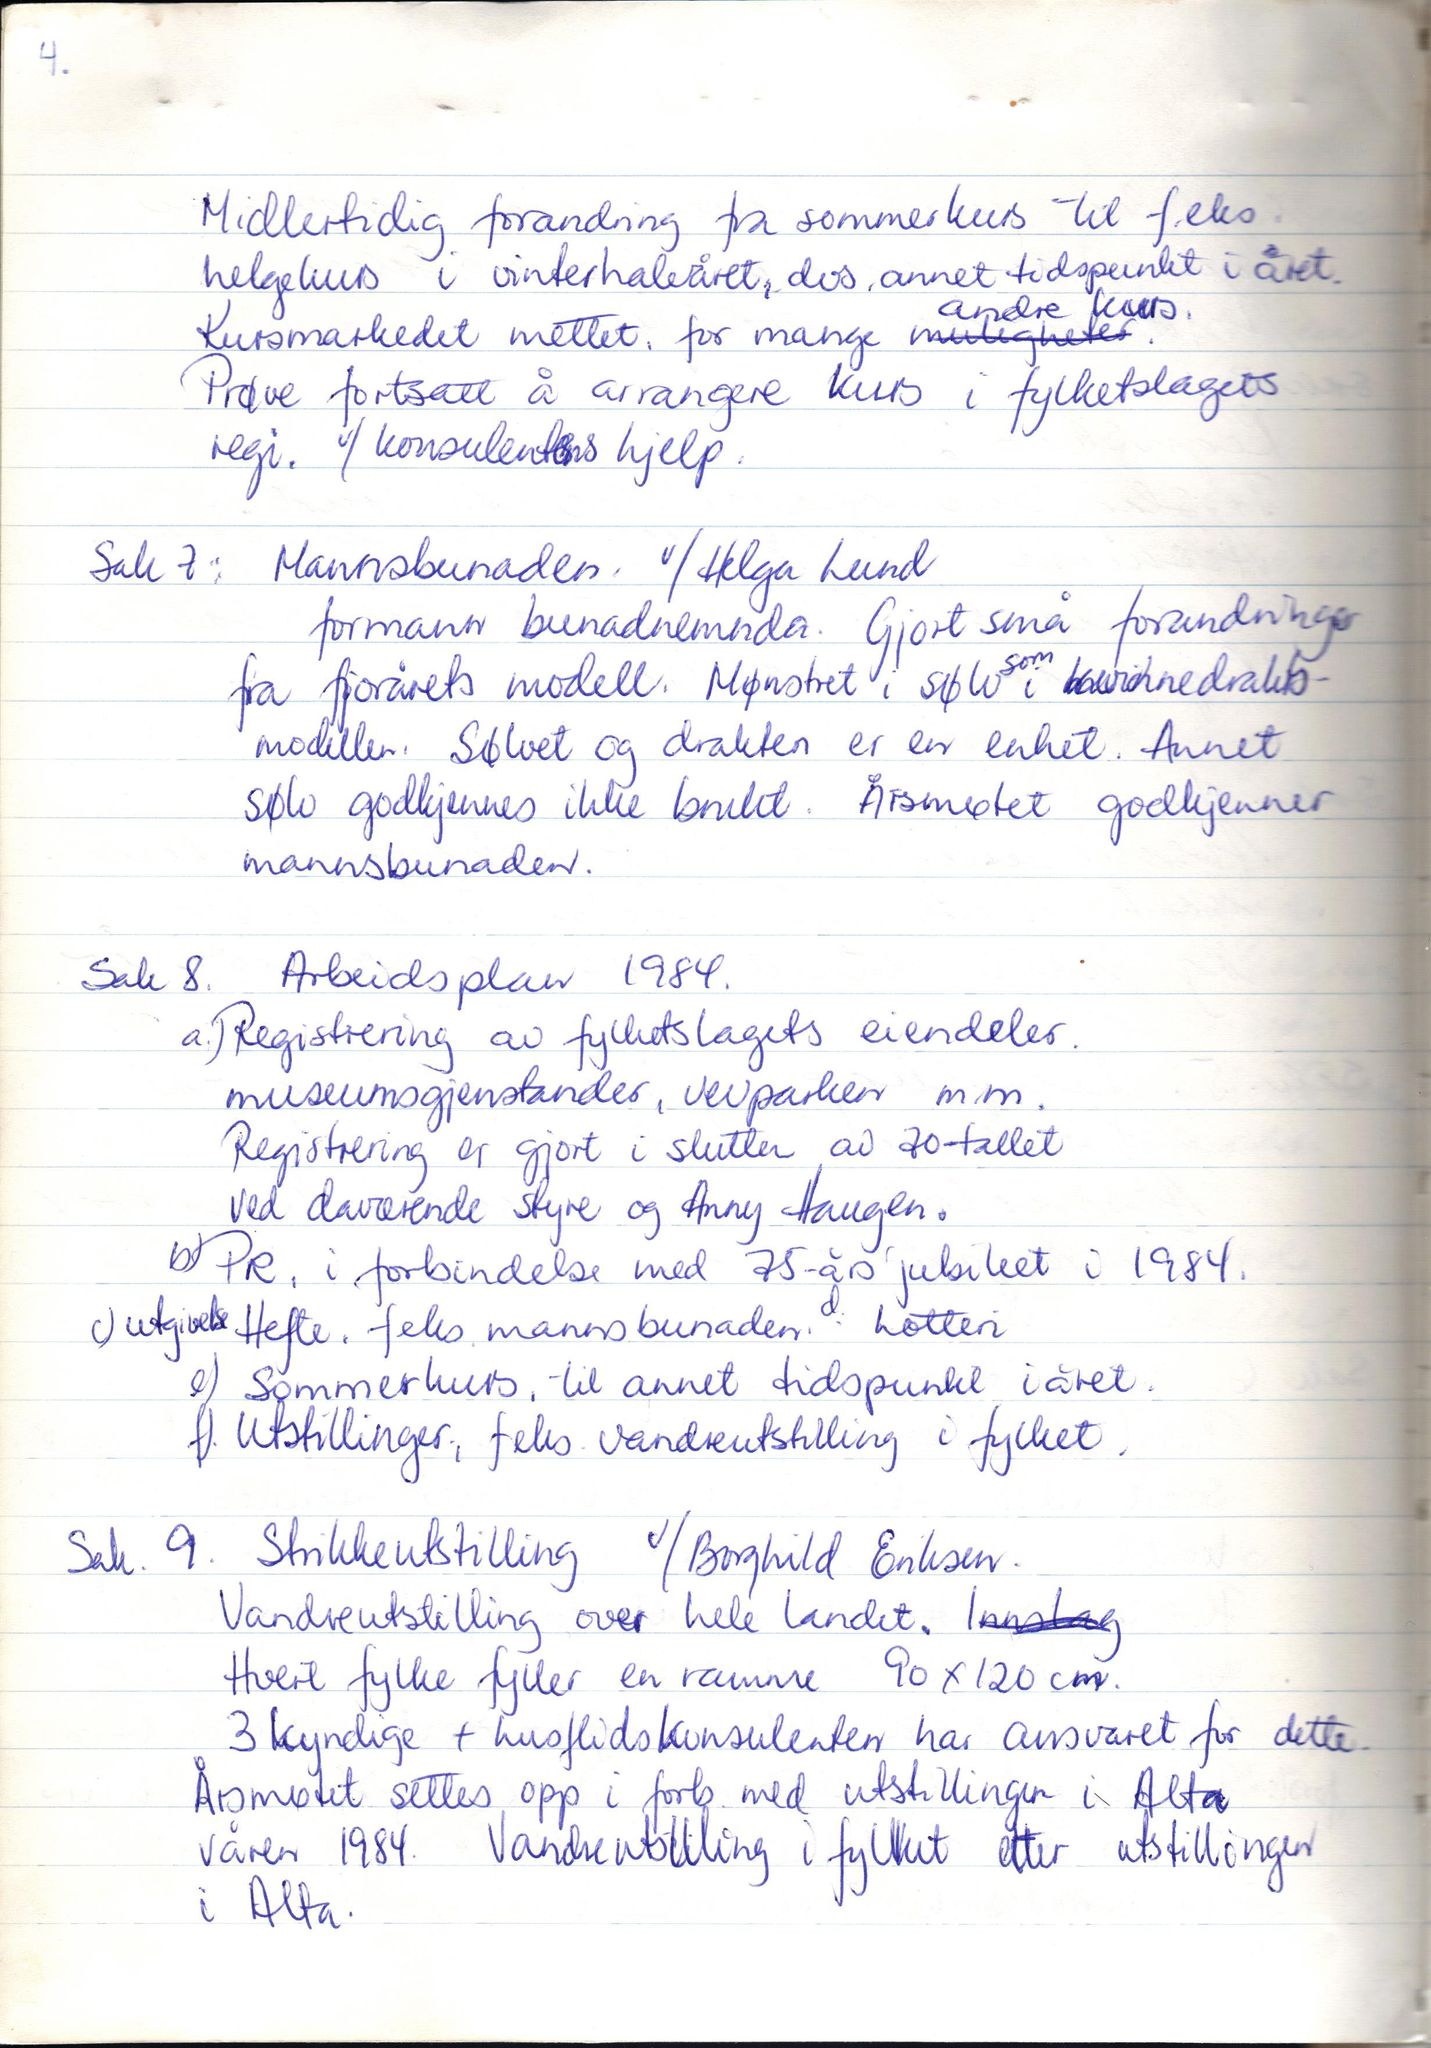 4.
Midlertidig forandring fra sommerkurs til f.eks.
helgekurs i vinterhalvåret, dvs. annet tidspunkt i året.
andre kurs.
Kursmarkedet mettet, for mange muligheter.
Prøve fortsatt å arrangere kurs i fylketslagets
regi. v/ konsulentens hjelp.
Sak 7: Mannsbunaden. v/ Helga Lund
formann bunadnemnda. Gjort små forandringer
fra fjorårets modell. Mønstret i sølv som i kvinnedrakts-
modellen. Sølvet og drakten er en enhet. Annet
sølv godkjennes ikke brukt. Årsmøtet godkjenner
mannsbunaden.
Sak 8. Arbeidsplan 1984.
a.) Registrering av fylketslagets eiendeler.
museumsgjenstander, vevparken m.m.
Registrering er gjort i slutten av 70-tallet
ved daværende styre og Anny Haugen.
b) PR, i forbindelse med 75-års jubileet i 1984.
c) utgivelse Hefte. f.eks. mannsbunaden. d. Lotteri
e) Sommerkurs, til annet tidspunkt i året.
f). Utstillinger, f.eks. vandreutstilling i fylket.
Sak. 9. Strikkeutstilling v/ Borghild Eriksen.
Vandreutstilling over hele landet. Innslag
Hvert fylke fyller en ramme 90 x 120 cm.
3 kyndige + husflidskonsulenten har ansvaret for dette.
Årsmøtet settes opp i forb. med utstillingen i Alta
våren 1984. Vandreutstilling i fylket etter utstillingen
i Alta.